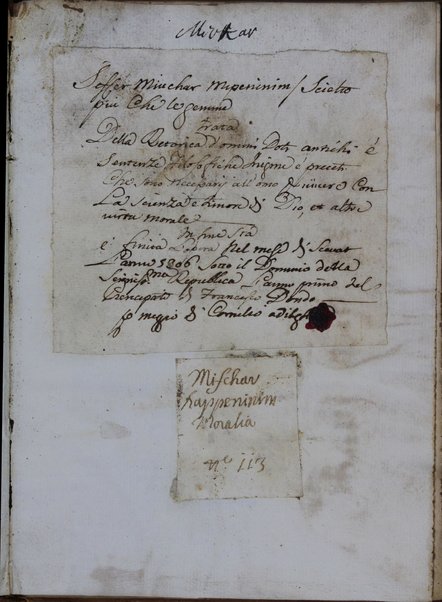 Mivkar
Seffer Miuchar Mipeninim / Scielto
piu che le gemme
trata
Della Retorica d'omini Doti antichi é
Sentenze Filosofiche Insigne é precetti
che sono necesarj all'omo p uivere con
La Scienza e timore di Dio, et altre
virtu morale
In fine sta
e' finita L'opera Nel mese di Sceuat
L'anno 5206 Sotto il Dominio della
Serenissma Republica L'anno primo del
Prencipato di Francesco Dondo
fo megio di Cornileo adilgh
Mischar
happeninim
Moralia
nº 113